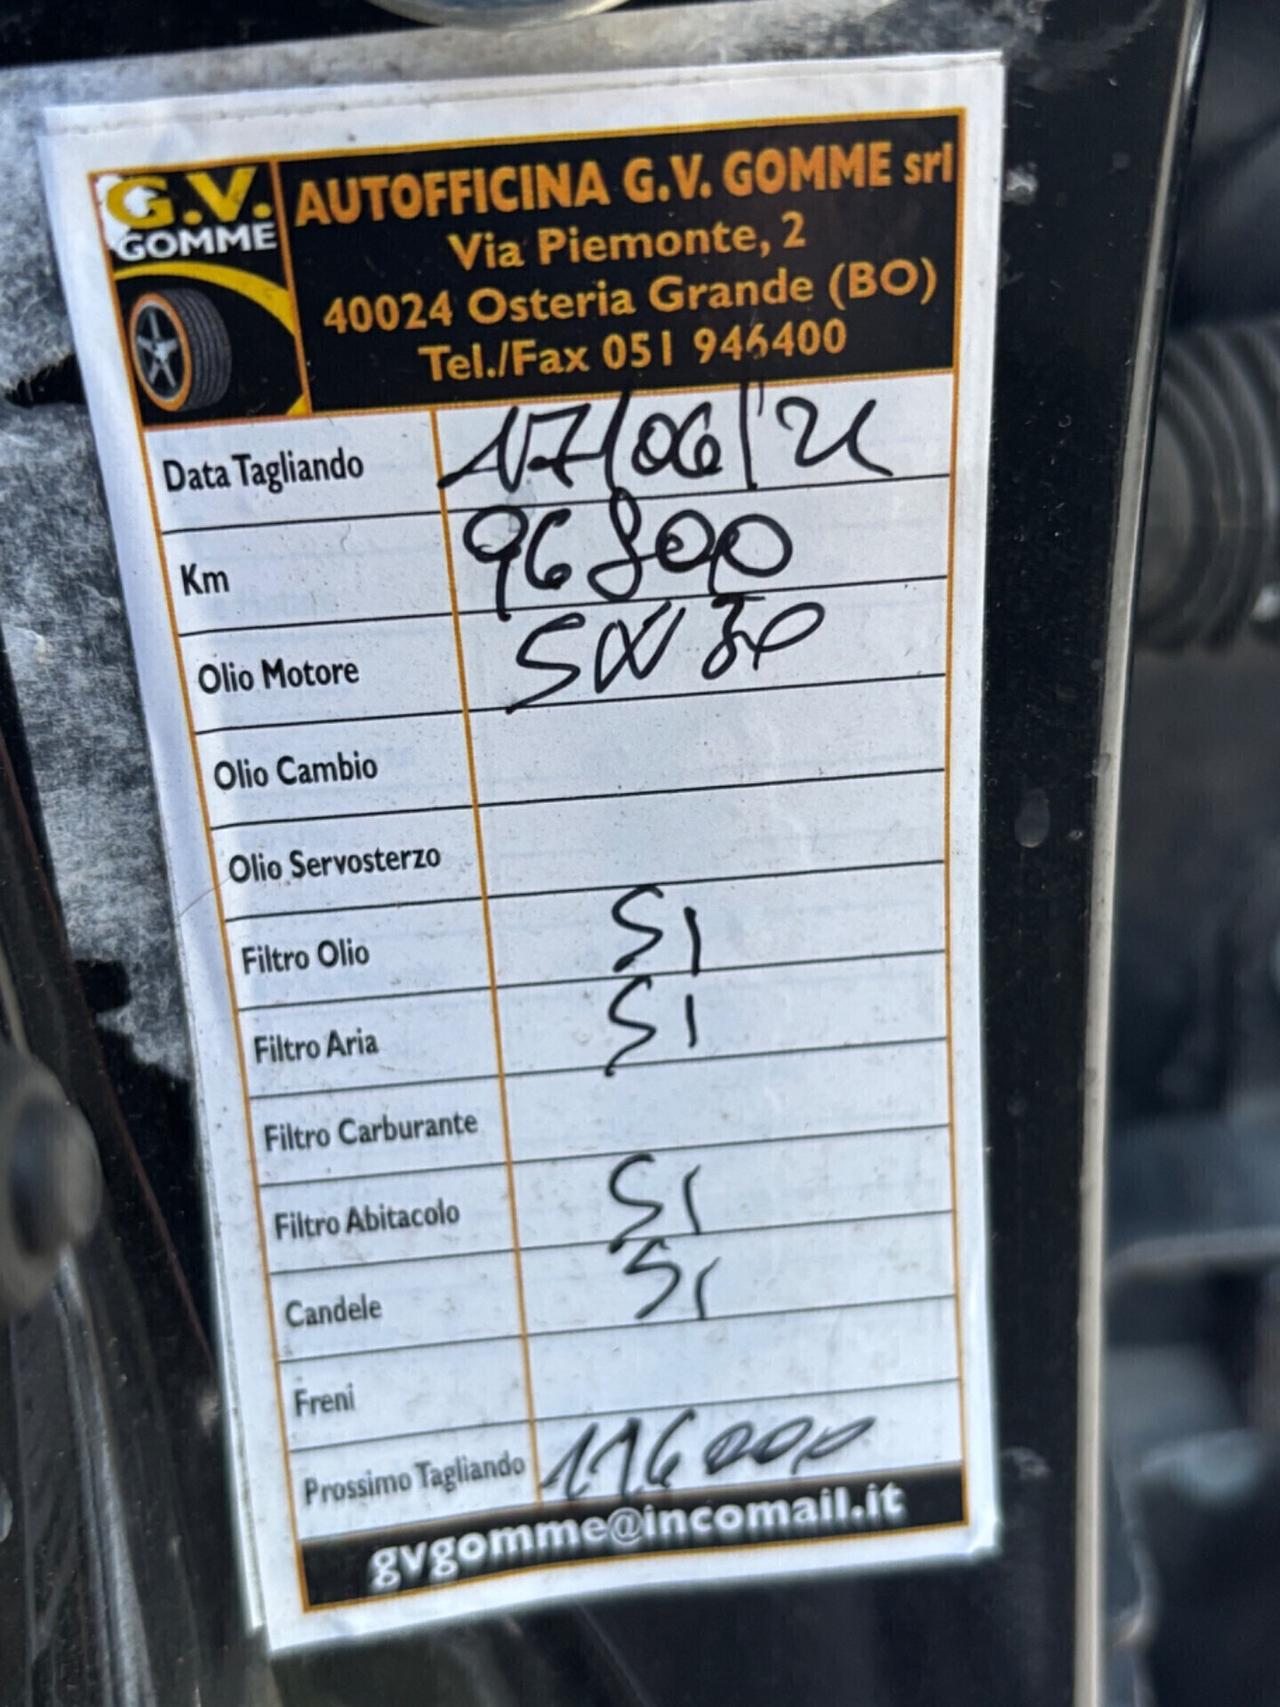 G.V.
GOMME
AUTOFFICINA G.V. GOMME srl
Via Piemonte, 2
40024 Osteria Grande (BO)
Tel./Fax 051 946400
Data Tagliando 17/06/21
Km 96800
Olio Motore 5W30
Olio Cambio
Olio Servosterzo
Filtro Olio SI
Filtro Aria SI
Filtro Carburante
Filtro Abitacolo SI
Candele SI
Freni
Prossimo Tagliando 116000
gvgomme@incomail.it